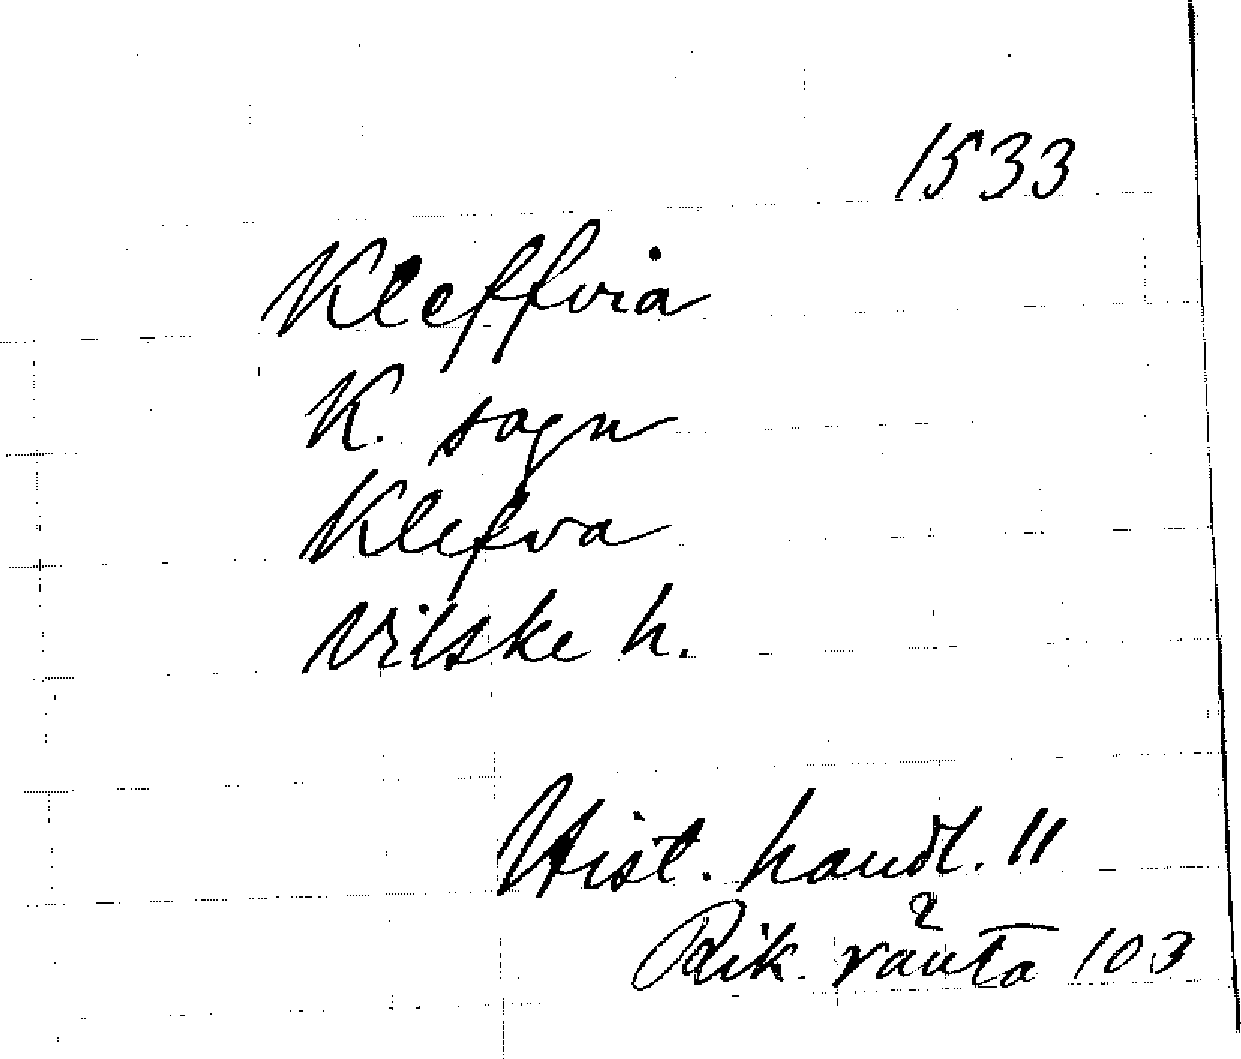 1533
Kleffvia
K. sogn
Klefva
Vilske h.
Hist. handl. 11
Rik. ränta 103